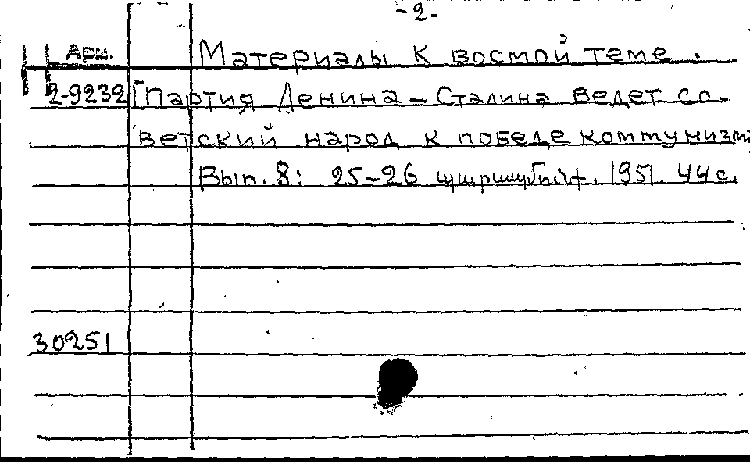 -2-
Арм. Материалы к восмой теме.
2-9232 [Партия Ленина-Сталина ведет со-
ветский народ к победе коммунизм
Вып. 8: 25-26 1951. 44с.
30251